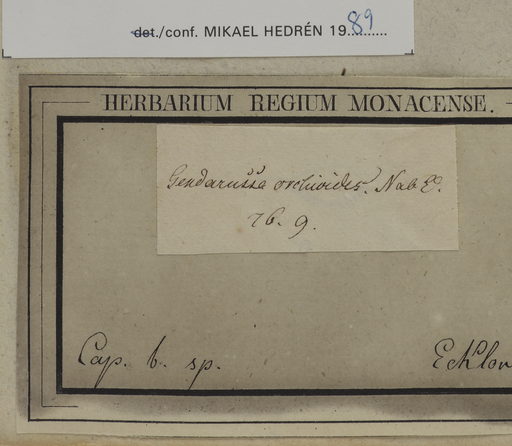 det./conf. MIKAEL HEDRÉN 1989
HERBARIUM REGIUM MONACENSE.
Gendarussa orchioides. Nab E.
76. 9.
Cap. b. sp. Ecklon